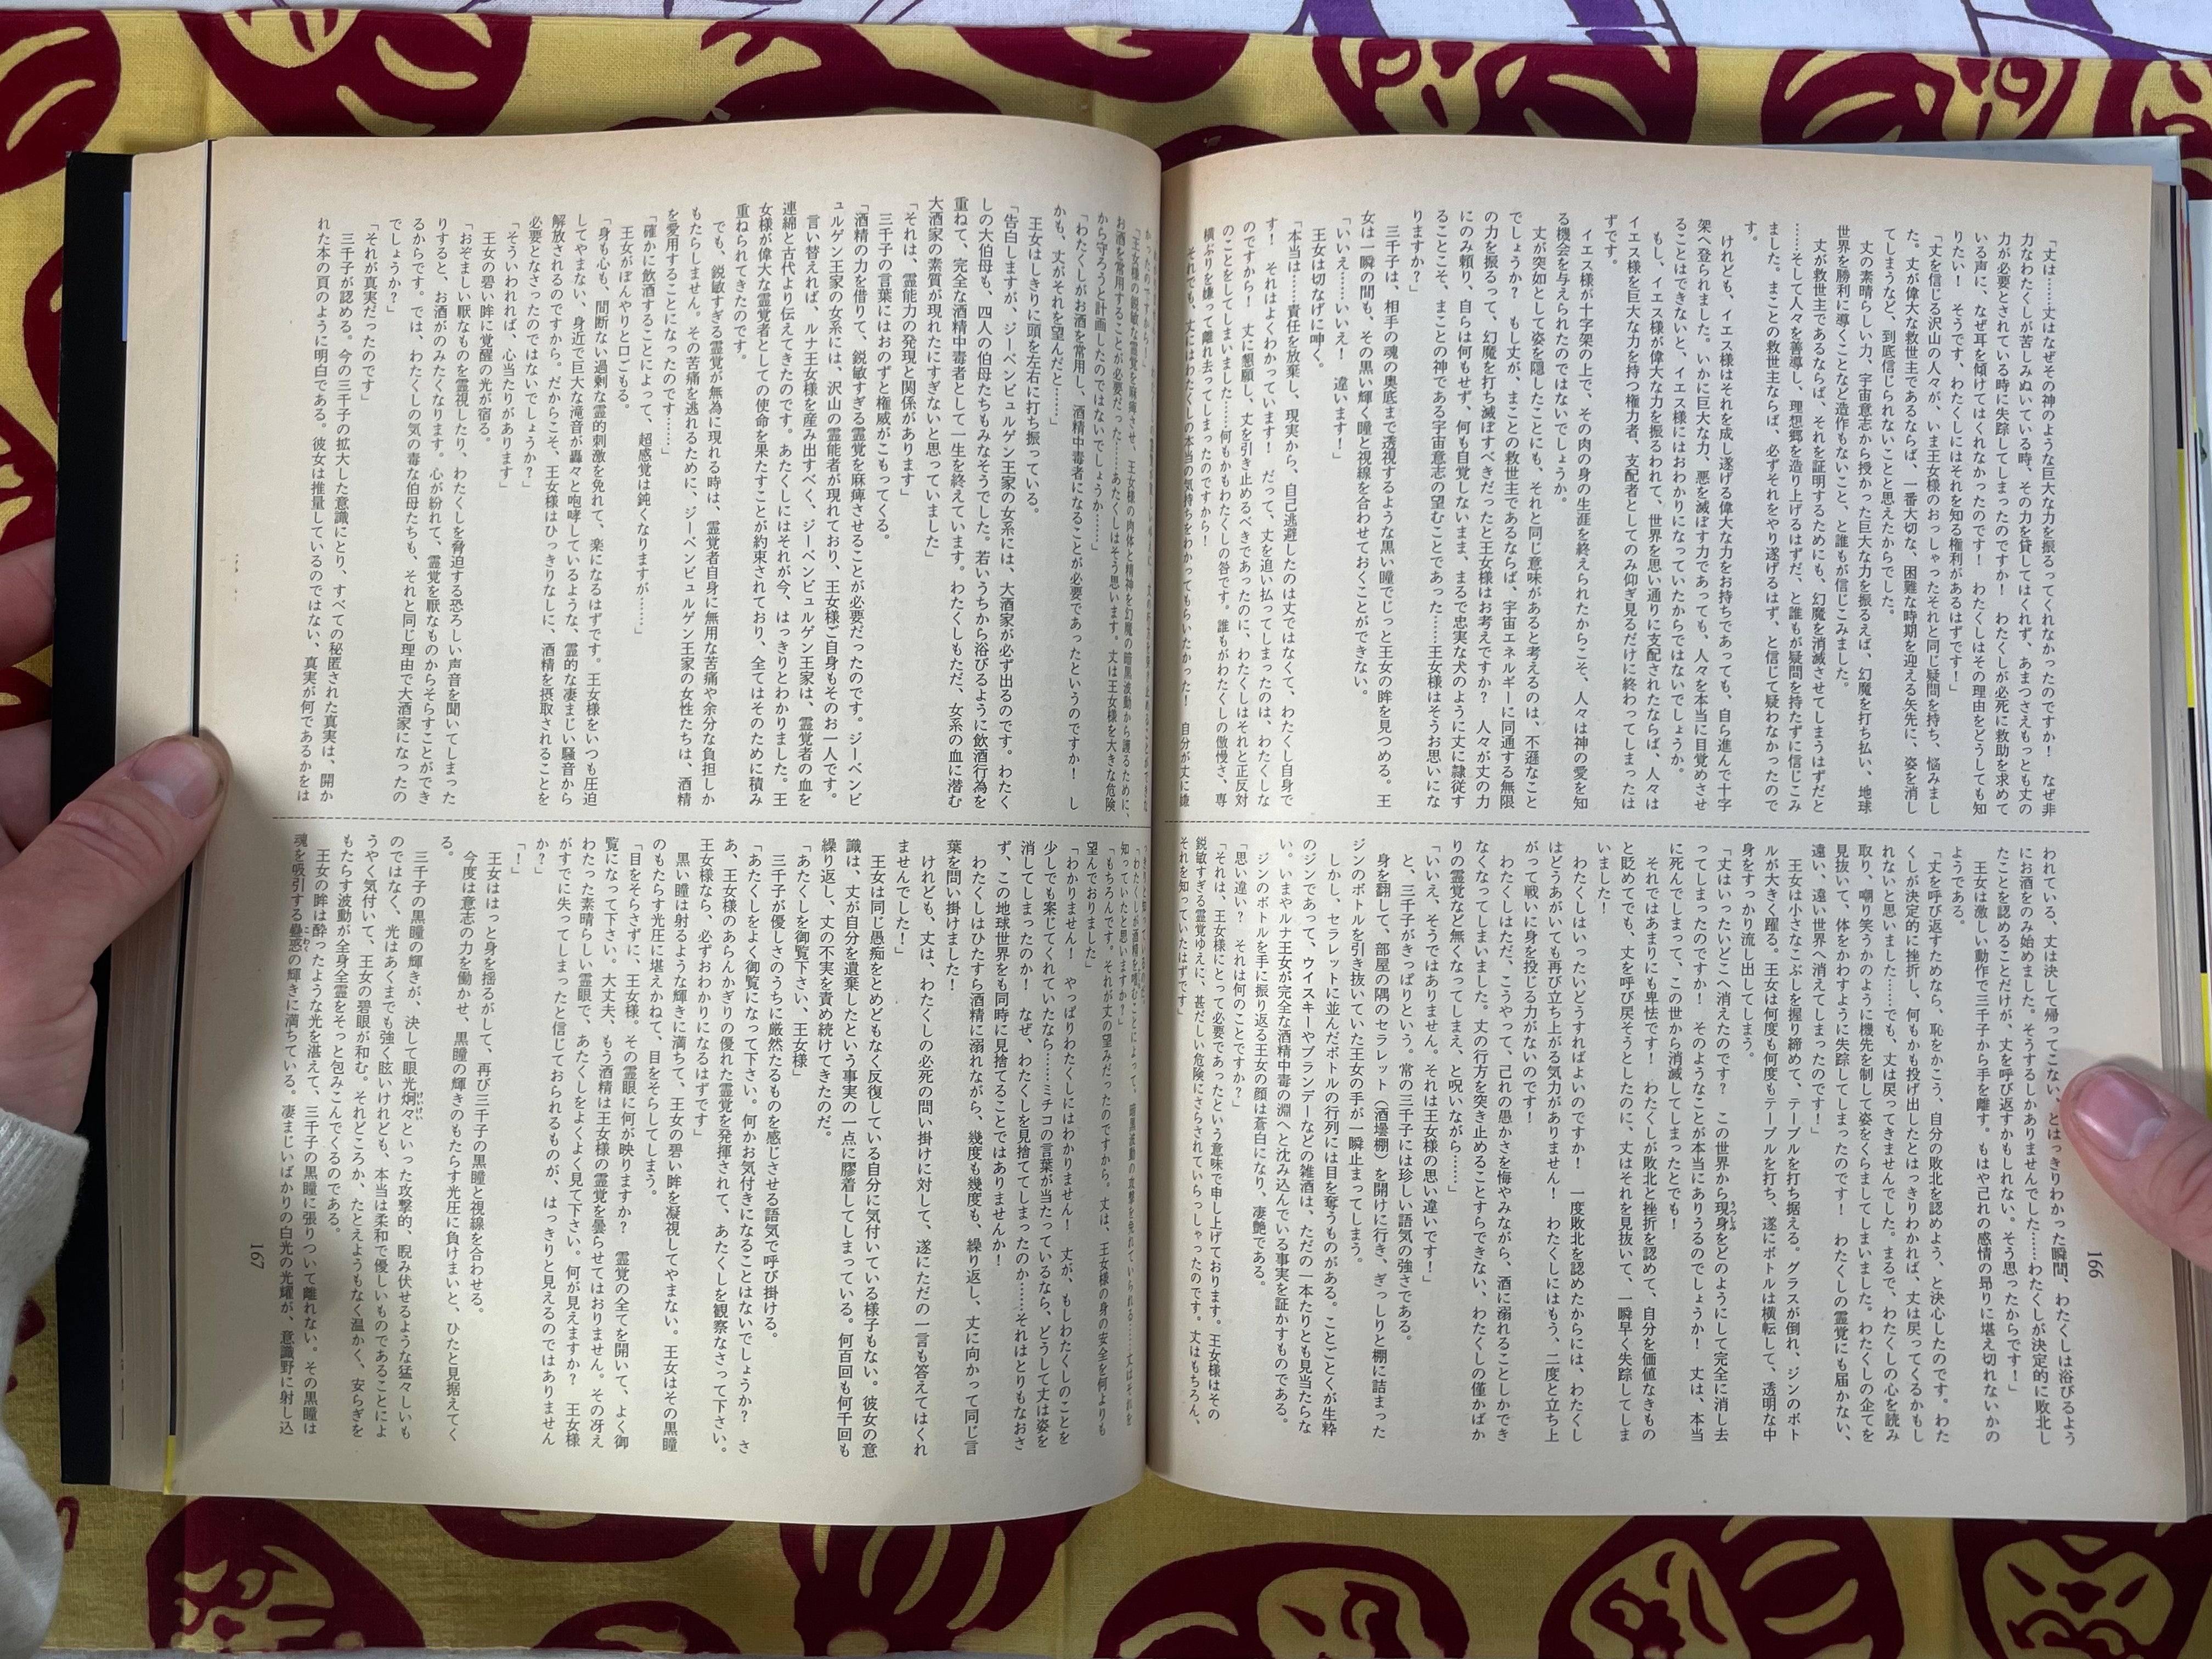 「丈は……丈はなぜその神のような巨大な力を振るってくれなかったのですか！　なぜ非
力なわたくしが苦しみぬいている時、その力を貸してはくれず、あまつさえもっとも丈の
力が必要とされている時に失踪してしまったのですか！　わたくしが必死に救助を求めて
いる声に、なぜ耳を傾けてはくれなかったのです！　わたくしはその理由をどうしても知
りたい！　そうです、わたくしにはそれを知る権利があるはずです！」
「丈を信じる沢山の人々が、いま王女様のおっしゃったそれと同じ疑問を持ち、悩みまし
た。丈が偉大な救世主であるならば、一番大切な、困難な時期を迎える矢先に、姿を消し
てしまうなど、到底信じられないことと思えたからでした。
丈の素晴らしい力、宇宙意志から授かった巨大な力を振るえば、幻魔を打ち払い、地球
世界を勝利に導くことなど造作もないこと、と誰もが信じこみました。
丈が救世主であるならば、それを証明するためにも、幻魔を消滅させてしまうはずだと
……そして人々を善導し、理想郷を造り上げるはずだ、と誰もが疑問を持たずに信じこみ
ました。まことの救世主ならば、必ずそれをやり遂げるはず、と信じて疑わなかったので
す。
けれども、イエス様はそれを成し遂げる偉大な力をお持ちであっても、自ら進んで十字
架へ登られました。いかに巨大な力、悪を滅ぼす力であっても、人々を本当に目覚めさせ
ることはできないと、イエス様にはおわかりになっていたからではないでしょうか。
もし、イエス様が偉大な力を振るわれて、世界を思い通りに支配されたならば、人々は
イエス様を巨大な力を持つ権力者、支配者としてのみ仰ぎ見るだけに終わってしまったは
ずです。
イエス様が十字架の上で、その肉の身の生涯を終えられたからこそ、人々は神の愛を知
る機会を与えられたのではないでしょうか。
丈が突如として姿を隠したことにも、それと同じ意味があると考えるのは、不遜なこと
でしょうか？　もし丈が、まことの救世主であるならば、宇宙エネルギーに同通する無限
の力を振るって、幻魔を打ち滅ぼすべきだったと王女様はお考えですか？　人々が丈の力
にのみ頼り、自らは何もせず、何も自覚しないまま、まるで忠実な犬のように丈に隷従す
ることこそ、まことの神である宇宙意志の望むことであった……王女様はそうお思いにな
りますか？」
三千子は、相手の魂の奥底まで透視するような黒い瞳でじっと王女の眸を見つめる。王
女は一瞬の間も、その黒い輝く瞳と視線を合わせておくことができない。
「いいえ……いいえ！　違います！」
王女は切なげに呻く。
「本当は……責任を放棄し、現実から、自己逃避したのは丈ではなくて、わたくし自身で
す！　それはよくわかっています！　だって、丈を追い払ってしまったのは、わたくしな
のですから！　丈に懇願し、丈を引き止めるべきであったのに、わたくしはそれと正反対
のことをしてしまいました……何もかもわたくしの咎です。誰もがわたくしの傲慢さ、専
横ぶりを嫌って離れ去ってしまったのですから！
それでも、丈にはわたくしの本当の気持ちをわかってもらいたかった！　自分が丈に嫌
われている、丈は決して帰ってこない、とはっきりわかった瞬間、わたくしは浴びるよう
にお酒をのみ始めました。そうするしかありませんでした……わたくしが決定的に敗北し
たことを認めることだけが、丈を呼び返すかもしれない。そう思ったからです！」
王女は激しい動作で三千子から手を離す。もはや己の感情の昂りに堪え切れないかの
ようである。
「丈を呼び返すためなら、恥をかこう、自分の敗北を認めよう、と決心したのです。わた
くしが決定的に挫折し、何もかも投げ出したとはっきりわかれば、丈は戻ってくるかもし
れないと思いました……でも、丈は戻ってきませんでした。まるで、わたくしの心を読み
取り、嘲り笑うかのように機先を制して姿をくらましてしまいました。わたくしの企てを
見抜いて、体をかわすように失踪してしまったのです！　わたくしの霊覚にも届かない、
遠い、遠い世界へ消えてしまったのです！」
王女は小さなこぶしを握り締めて、テーブルを打ち据える。グラスが倒れ、ジンのボト
ルが大きく躍る。王女は何度も何度もテーブルを打ち、遂にボトルは横転して、透明な中
身をすっかり流し出してしまう。
「丈はいったいどこへ消えたのです？　この世界から現身をどのようにして完全に消し去
ってしまったのですか！　そのようなことが本当にありうるのでしょうか！　丈は、本当
に死んでしまって、この世から消滅してしまったとでも！
それではあまりにも卑怯です！　わたくしが敗北と挫折を認めて、自分を価値なきもの
と貶めてでも、丈を呼び戻そうとしたのに、丈はそれを見抜いて、一瞬早く失踪してしま
いました！
わたくしはいったいどうすればよいのですか！　一度敗北を認めたからには、わたくし
はどうあがいても再び立ち上がる気力がありません！　わたくしにはもう、二度と立ち上
がって戦いに身を投じる力がないのです！
わたくしはただ、こうやって、己れの愚かさを悔やみながら、酒に溺れることしかでき
なくなってしまいました。丈の行方を突き止めることすらできない、わたくしの僅かばか
りの霊覚など無くなってしまえ、と呪いながら……」
「いいえ、そうではありません。それは王女様の思い違いです！」
と、三千子がきっぱりという。常の三千子には珍しい語気の強さである。
身を翻して、部屋の隅のセラレット（酒壜棚）を開けに行き、ぎっしりと棚に詰まった
ジンのボトルを引き抜いていた王女の手が一瞬止まってしまう。
しかし、セラレットに並んだボトルの行列には目を奪うものがある。ことごとくが生粋
のジンであって、ウイスキーやブランデーなどの雑酒は、ただの一本たりとも見当たらな
い。いまやルナ王女が完全な酒精中毒の淵へと沈み込んでいる事実を証かすものである。
ジンのボトルを手に振り返る王女の顔は蒼白になり、凄艶である。
「思い違い？　それは何のことですか？」
「それは、王女様にとって必要であったという意味で申し上げております。王女様はその
鋭敏すぎる霊覚ゆえに、甚だしい危険にさらされていらっしゃったのです。丈はもちろん、
それを知っていたはずです」
166
「王女様の鋭敏な霊覚を麻痺させ、王女様の肉体と精神を幻魔の暗黒波動から護るために、
お酒を常用することが必要だった……あたくしはそう思います。丈は王女様を大きな危険
から守ろうと計画したのではないでしょうか……」
「わたくしがお酒を常用し、酒精中毒者になることが必要であったというのですか！　し
かも、丈がそれを望んだと……」
王女はしきりに頭を左右に打ち振っている。
「告白しますが、ジーベンビュルゲン王家の女系には、大酒家が必ず出るのです。わたく
しの大伯母も、四人の伯母たちもみなそうでした。若いうちから浴びるように飲酒行為を
重ねて、完全な酒精中毒者として一生を終えています。わたくしもただ、女系の血に潜む
大酒家の素質が現れたにすぎないと思っていました」
「それは、霊能力の発現と関係があります」
三千子の言葉にはおのずと権威がこもってくる。
「酒精の力を借りて、鋭敏すぎる霊覚を麻痺させることが必要だったのです。ジーベンビ
ュルゲン王家の女系には、沢山の霊能者が現れており、王女様ご自身もそのお一人です。
言い替えれば、ルナ王女様を産み出すべく、ジーベンビュルゲン王家は、霊覚者の血を
連綿と古代より伝えてきたのです。あたくしにはそれが今、はっきりとわかりました。王
女様が偉大な霊覚者としての使命を果たすことが約束されており、全てはそのために積み
重ねられてきたのです。
でも、鋭敏すぎる霊覚が無為に現れる時は、霊覚者自身に無用な苦痛や余分な負担しか
もたらしません。その苦痛を逃れるために、ジーベンビュルゲン王家の女性たちは、酒精
を愛用することになったのです……」
「確かに飲酒することによって、超感覚は鈍くなりますが……」
王女がぼんやりと口ごもる。
「身も心も、間断ない過剰な霊的刺激を免れて、楽になるはずです。王女様をいつも圧迫
してやまない、身近で巨大な滝音が轟々と咆哮しているような、霊的な凄まじい騒音から
解放されるのですから。だからこそ、王女様はひっきりなしに、酒精を摂取されることを
必要となさったのではないでしょうか？」
「そういわれれば、心当たりがあります」
王女の碧い眸に覚醒の光が宿る。
「おぞましい厭なものを霊視したり、わたくしを脅迫する恐ろしい声音を聞いてしまった
りすると、お酒がのみたくなります。心が紛れて、霊覚を厭なものからそらすことができ
るからです。では、わたくしの気の毒な伯母たちも、それと同じ理由で大酒家になったの
でしょうか？」
「それが真実だったのです」
三千子が認める。今の三千子の拡大した意識にとり、すべての秘匿された真実は、開か
れた本の頁のように明白である。彼女は推量しているのではない、真実が何であるかをは
「わたくしが酒精を嗜むことによって、暗黒波動の攻撃を免れていられる……丈はそれを
知っていたと思いますか？」
「もちろんです。それが丈の望みだったのですから。丈は、王女様の身の安全を何よりも
望んでおりました」
「わかりません！　やっぱりわたくしにはわかりません！　丈が、もしわたくしのことを
少しでも案じてくれていたなら……ミチコの言葉が当たっているなら、どうして丈は姿を
消してしまったのか！　なぜ、わたくしを見捨ててしまったのか……それはとりもなおさ
ず、この地球世界をも同時に見捨てることではありませんか！
わたくしはひたすら酒精に溺れながら、幾度も幾度も、繰り返し、丈に向かって同じ言
葉を問い掛けました！
けれども、丈は、わたくしの必死の問い掛けに対して、遂にただの一言も答えてはくれ
ませんでした！」
王女は同じ愚痴をとめどもなく反復している自分に気付いている様子もない。彼女の意
識は、丈が自分を遺棄したという事実の一点に膠着してしまっている。何百回も何千回も
繰り返し、丈の不実を責め続けてきたのだ。
「あたくしを御覧下さい、王女様」
三千子が優しさのうちに厳然たるものを感じさせる語気で呼び掛ける。
「あたくしをよく御覧になって下さい。何かお気付きになることはないでしょうか？　さ
あ、王女様のあらんかぎりの優れた霊覚を発揮されて、あたくしを観察なさって下さい。
王女様なら、必ずおわかりになるはずです」
黒い瞳は射るような輝きに満ちて、王女の碧い眸を凝視してやまない。王女はその黒瞳
のもたらす光圧に堪えかねて、目をそらしてしまう。
「目をそらさずに、王女様。その霊眼に何が映りますか？　霊覚の全てを開いて、よく御
覧になって下さい。大丈夫、もう酒精は王女様の霊覚を曇らせてはおりません。その冴え
わたった素晴らしい霊眼で、あたくしをよくよく見て下さい。何が見えますか？　王女様
がすでに失ってしまったと信じておられるものが、はっきりと見えるのではありません
か？」
「！」
王女ははっと身を揺るがして、再び三千子の黒瞳と視線を合わせる。
今度は意志の力を働かせ、黒瞳の輝きのもたらす光圧に負けまいと、ひたと見据えてく
る。
三千子の黒瞳の輝きが、決して眼光炯々といった攻撃的、睨み伏せるような猛々しいも
のではなく、光はあくまでも強く眩いけれども、本当は柔和で優しいものであることによ
うやく気付いて、王女の碧眼が和む。それどころか、たとえようもなく温かく、安らぎを
もたらす波動が全身全霊をそっと包みこんでくるのである。
王女の眸は酔ったような光を湛えて、三千子の黒瞳に張りついて離れない。その黒瞳は
魂を吸引する蠱惑の輝きに満ちている。凄まじいばかりの白光の光耀が、意識野に射し込
167